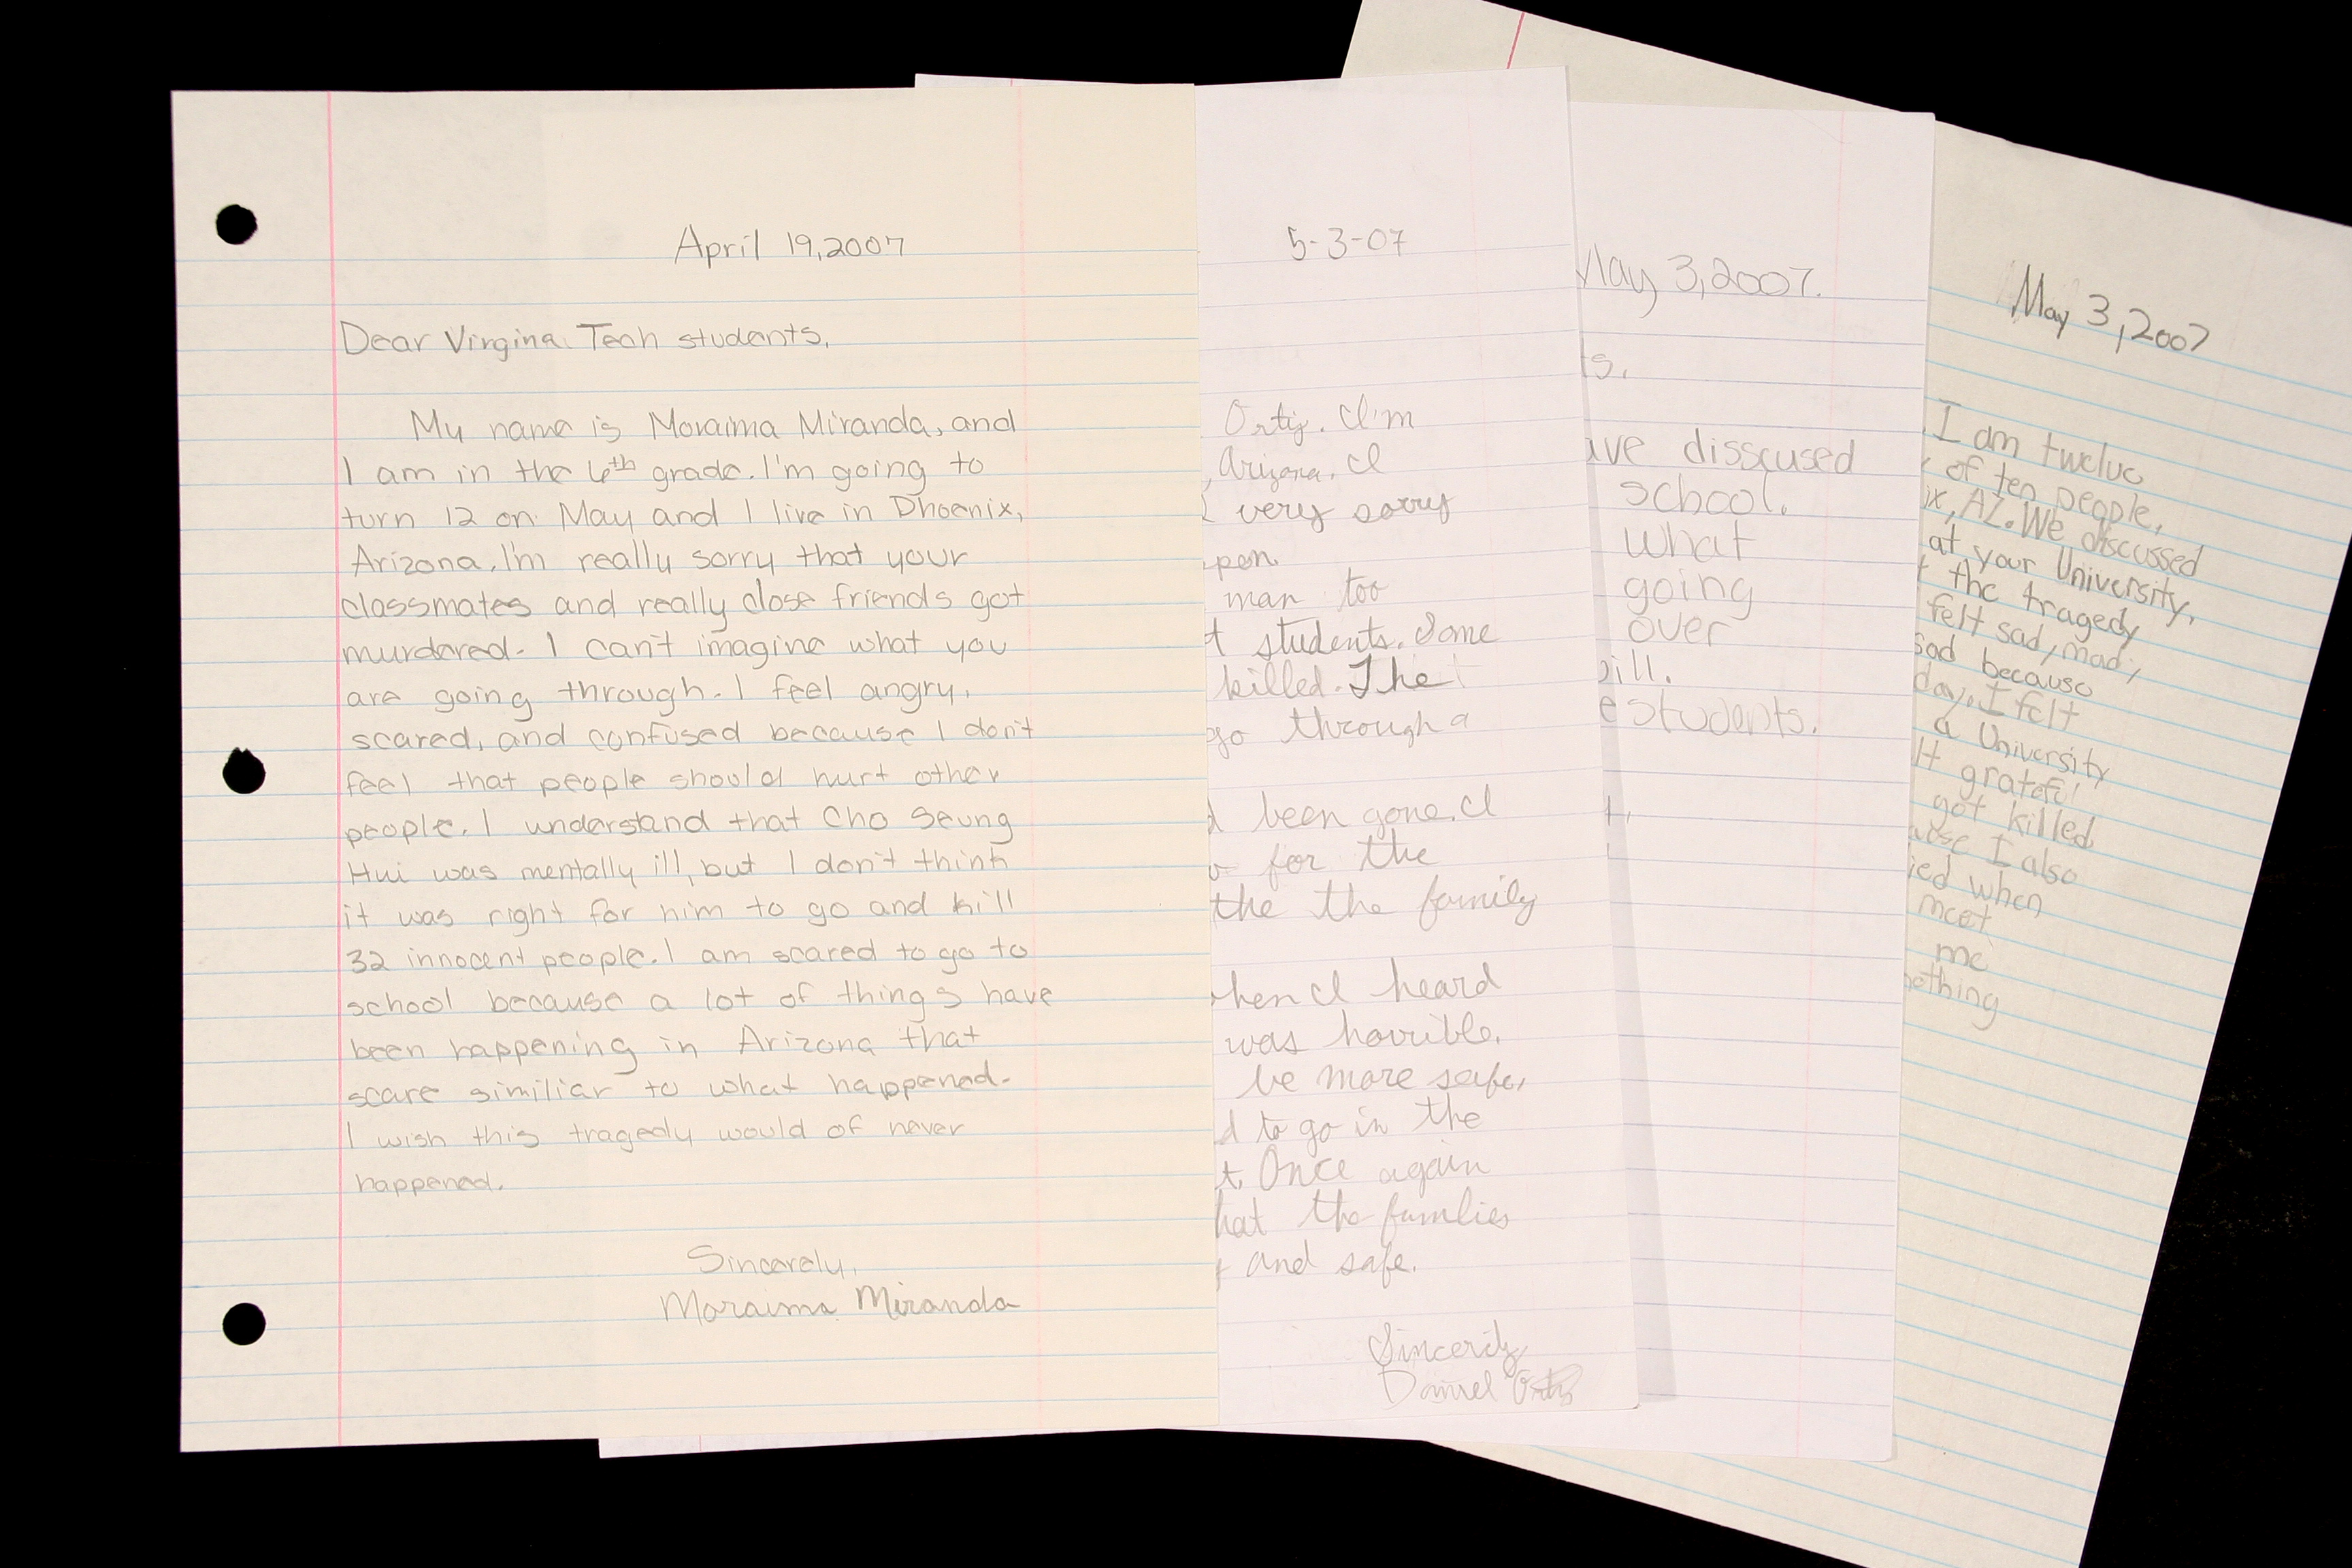 April 19, 2007
Dear Virgina Tech students,
My name is Moraima Miranda, and
I am in the 6th grade. I'm going to
turn 12 on May and I live in Phoenix,
Arizona. I'm really sorry that your
classmates and really close friends got
murdered. I can't imagine what you
are going through. I feel angry,
scared, and confused because I don't
feel that people should hurt other
people. I understand that Cho Seung
Hui was mentally ill, but I don't think
it was right for him to go and kill
32 innocent people. I am scared to go to
school because a lot of things have
been happening in Arizona that
scare similiar to what happened.
I wish this tragedy would of never
happened.
Sincerely,
Moraima Miranda
5-3-07
Ortiz. I'm
, Arizona. I
very sorry
pen
man too
t students. Some
killed. The
go through a
been gone. I
for the
the the family
hen I heard
was horrible.
be more safe,
d to go in the
t. Once again
hat the families
and safe.
Sincerily
Daniel Ortiz
May 3, 2007.
ts,
ave disscused
school.
what
going
over
ill.
e students.
t,
May 3, 2007
I am twelve
of ten people,
ix, AZ. We discussed
at your University,
the tragedy
felt sad, mad,
sad because
day. I felt
a University
lt grateful
got killed
ause I also
ied when
meet
me
nothing